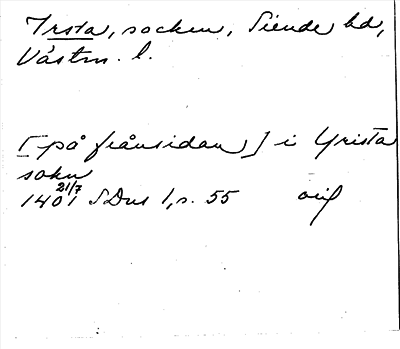 Irsta, socken, Siende hd,
Västm. l.
[på frånsidan] i Yrista
sokn
1401 21/7 SDns 1, s. 55 orig